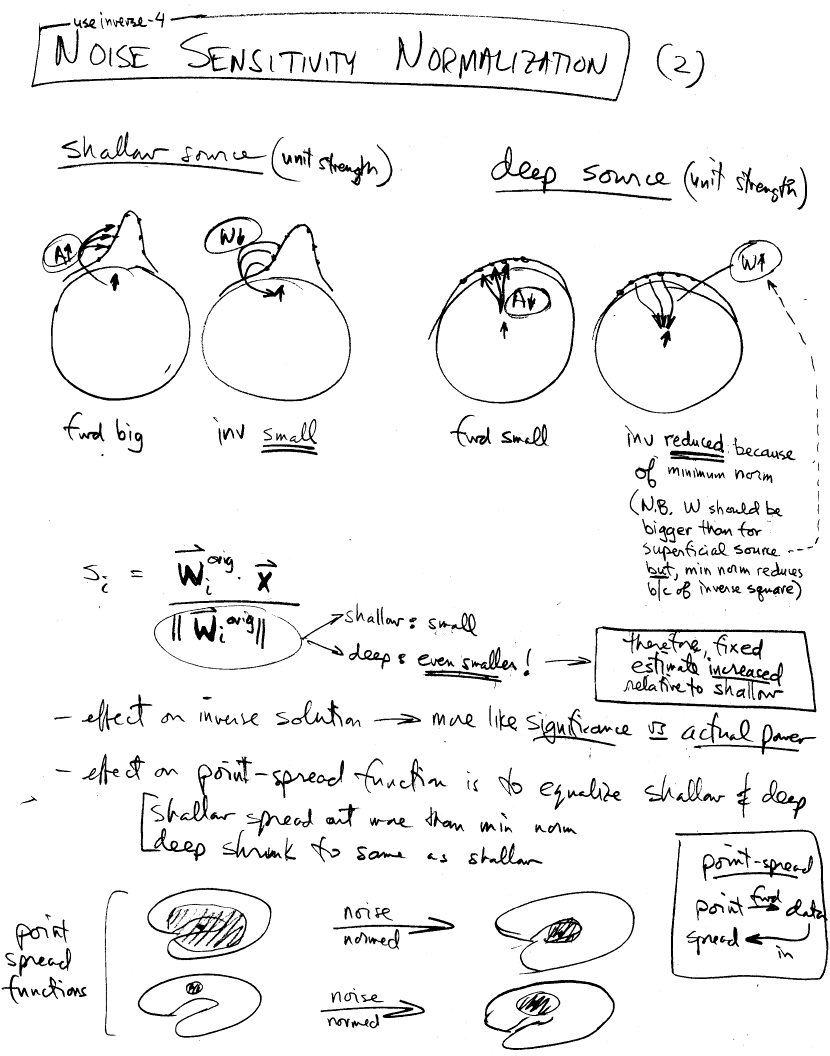 use inverse-4
NOISE SENSITIVITY NORMALIZATION (2)
shallow source (unit strength)
deep source (unit strength)
A↑
W↓
A↓
W↑
fwd big
inv small
fwd small
inv reduced because
of minimum norm
(N.B. W should be
bigger than for
superficial source
but, min norm reduces
b/c of inverse square)
Si = Wi orig · x
|| Wi orig ||
shallow: small
deep: even smaller!
therefore, fixed
estimate increased
relative to shallow
- effect on inverse solution → more like significance vs actual power
- effect on point-spread function is to equalize shallow & deep
shallow spread out more than min norm
deep shrunk to same as shallow
point
spread
functions
noise
normed
noise
normed
point-spread
point fwd data
spread
in